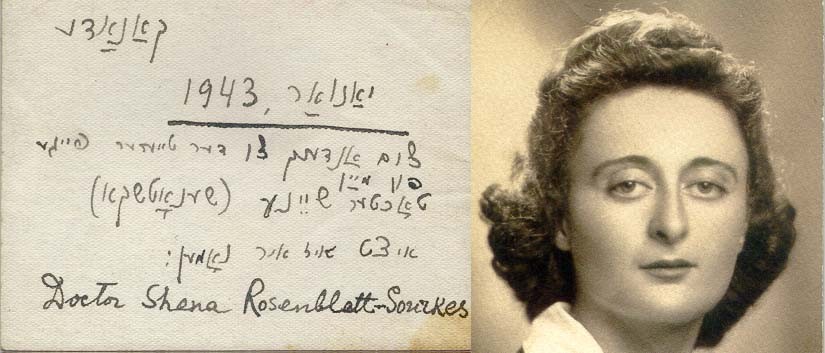 קאַנאַדע
יאַנואַר, 1943
צום אַנדענק צו דער טייערער פייגע
פון מיין
טאָכטער שיינע (שענאָטשקאַ)
איצט איר נאָמען:
Doctor Shena Rosenblatt-Sourkes